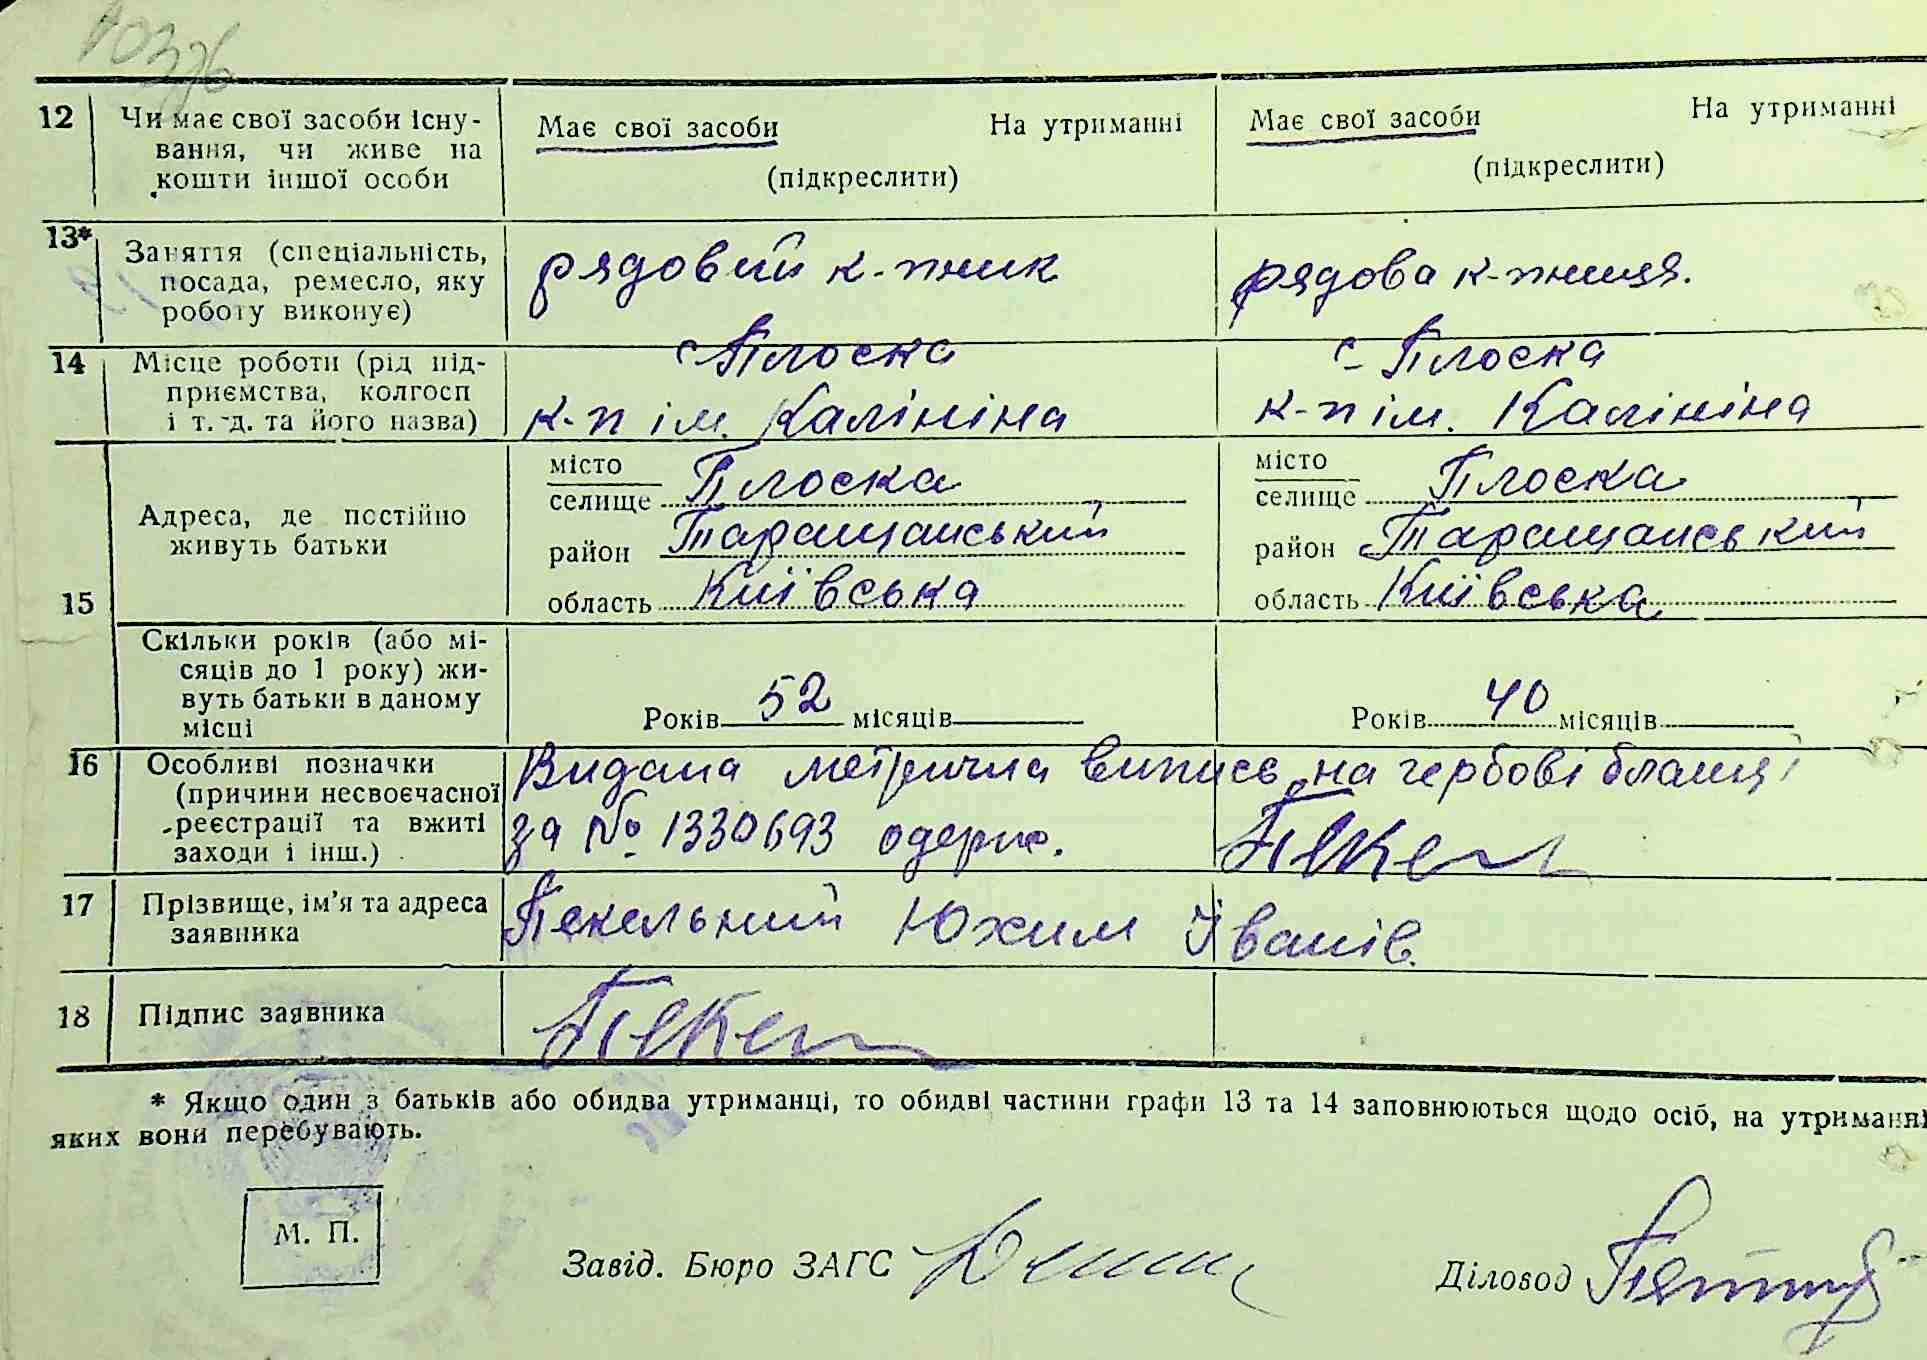 12 Чи має свої засоби існу-
вання, чи живе на
кошти іншої особи
Має свої засоби На утриманні
(підкреслити)
Має свої засоби На утриманні
(підкреслити)
13* Заняття (спеціальність,
посада, ремесло, яку
роботу виконує)
рядовий к-пник
рядова к-пниця.
14 Місце роботи (рід під-
приємства, колгосп
і т. д. та його назва)
с Плоска
к-п ім. Калініна
с Плоска
к-п ім. Калініна
15 Адреса, де постійно
живуть батьки
місто
селище Плоска
район Таращанський
область Київська
місто
селище Плоска
район Таращанський
область Київська
Скільки років (або мі-
сяців до 1 року) жи-
вуть батьки в даному
місці
Років 52 місяців
Років 40 місяців
16 Особливі позначки
(причини несвоєчасної
реєстрації та вжиті
заходи і інш.)
Видана метрична випись на гербові бланці
за № 1330693 одерж. Пекел
17 Прізвище, ім'я та адреса
заявника
Пекельний Юхим Іванів.
18 Підпис заявника
Пекел
* Якщо один з батьків або обидва утриманці, то обидві частини графи 13 та 14 заповнюються щодо осіб, на утриманні
яких вони перебувають.
М. П.
Завід. Бюро ЗАГС
Діловод